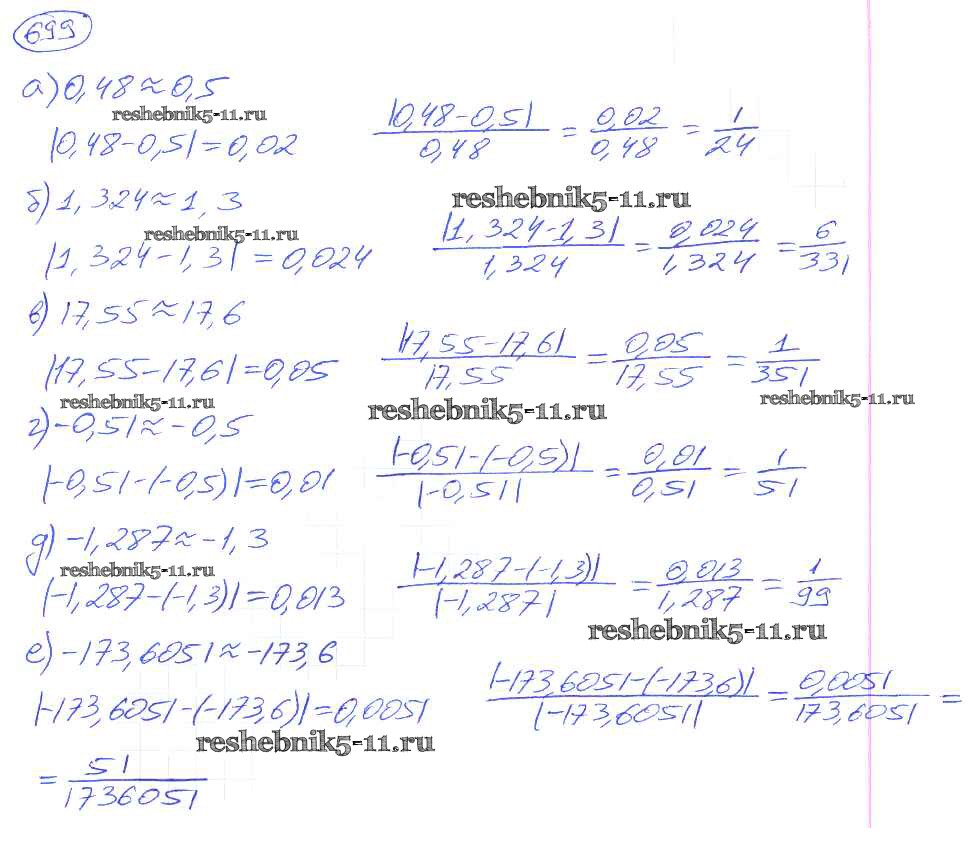 699
а) 0,48 ≈ 0,5
reshebnik5-11.ru
|0,48-0,5| = 0,02
|0,48-0,5| / 0,48 = 0,02 / 0,48 = 1/24
б) 1,324 ≈ 1,3
reshebnik5-11.ru
reshebnik5-11.ru
|1,324-1,3| = 0,024
|1,324-1,3| / 1,324 = 0,024 / 1,324 = 6/331
в) 17,55 ≈ 17,6
|17,55-17,6| = 0,05
|17,55-17,6| / 17,55 = 0,05 / 17,55 = 1/351
reshebnik5-11.ru
reshebnik5-11.ru
reshebnik5-11.ru
г) -0,51 ≈ -0,5
|-0,51-(-0,5)| = 0,01
|-0,51-(-0,5)| / |-0,51| = 0,01 / 0,51 = 1/51
д) -1,287 ≈ -1,3
reshebnik5-11.ru
|-1,287-(-1,3)| = 0,013
|-1,287-(-1,3)| / |-1,287| = 0,013 / 1,287 = 1/99
reshebnik5-11.ru
е) -173,6051 ≈ -173,6
|-173,6051-(-173,6)| = 0,0051
|-173,6051-(-173,6)| / |-173,6051| = 0,0051 / 173,6051 =
reshebnik5-11.ru
= 51 / 1736051